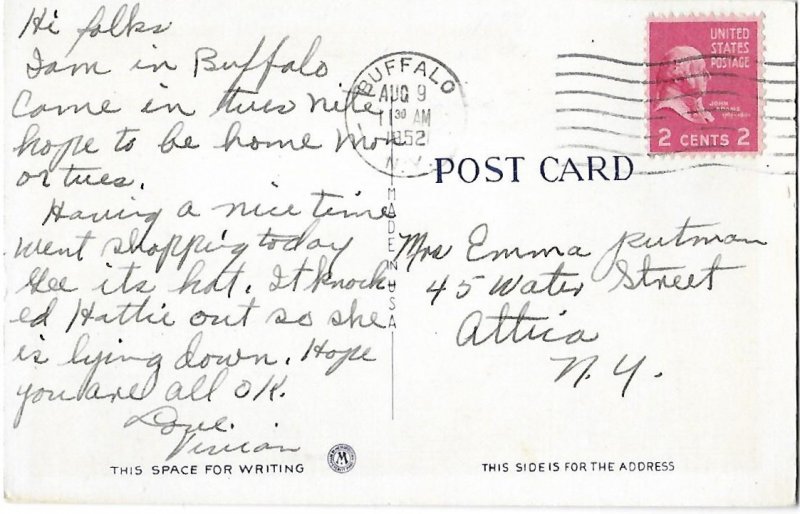 Hi folks
I am in Buffalo
Came in tues nite
hope to be home Mon
or tues.
Having a nice time
went shopping today
Gee its hot. It knock
ed Hattie out so she
is lying down. Hope
you are all OK.
Love.
Vivian
THIS SPACE FOR WRITING
BUFFALO
AUG 9
11 30 AM
1952
N.Y.
MADE IN USA
UNITED
STATES
POSTAGE
JOHN
ADAMS
2 CENTS 2
POST CARD
Mrs Emma Putman
45 Water Street
Attica
N.Y.
THIS SIDE IS FOR THE ADDRESS